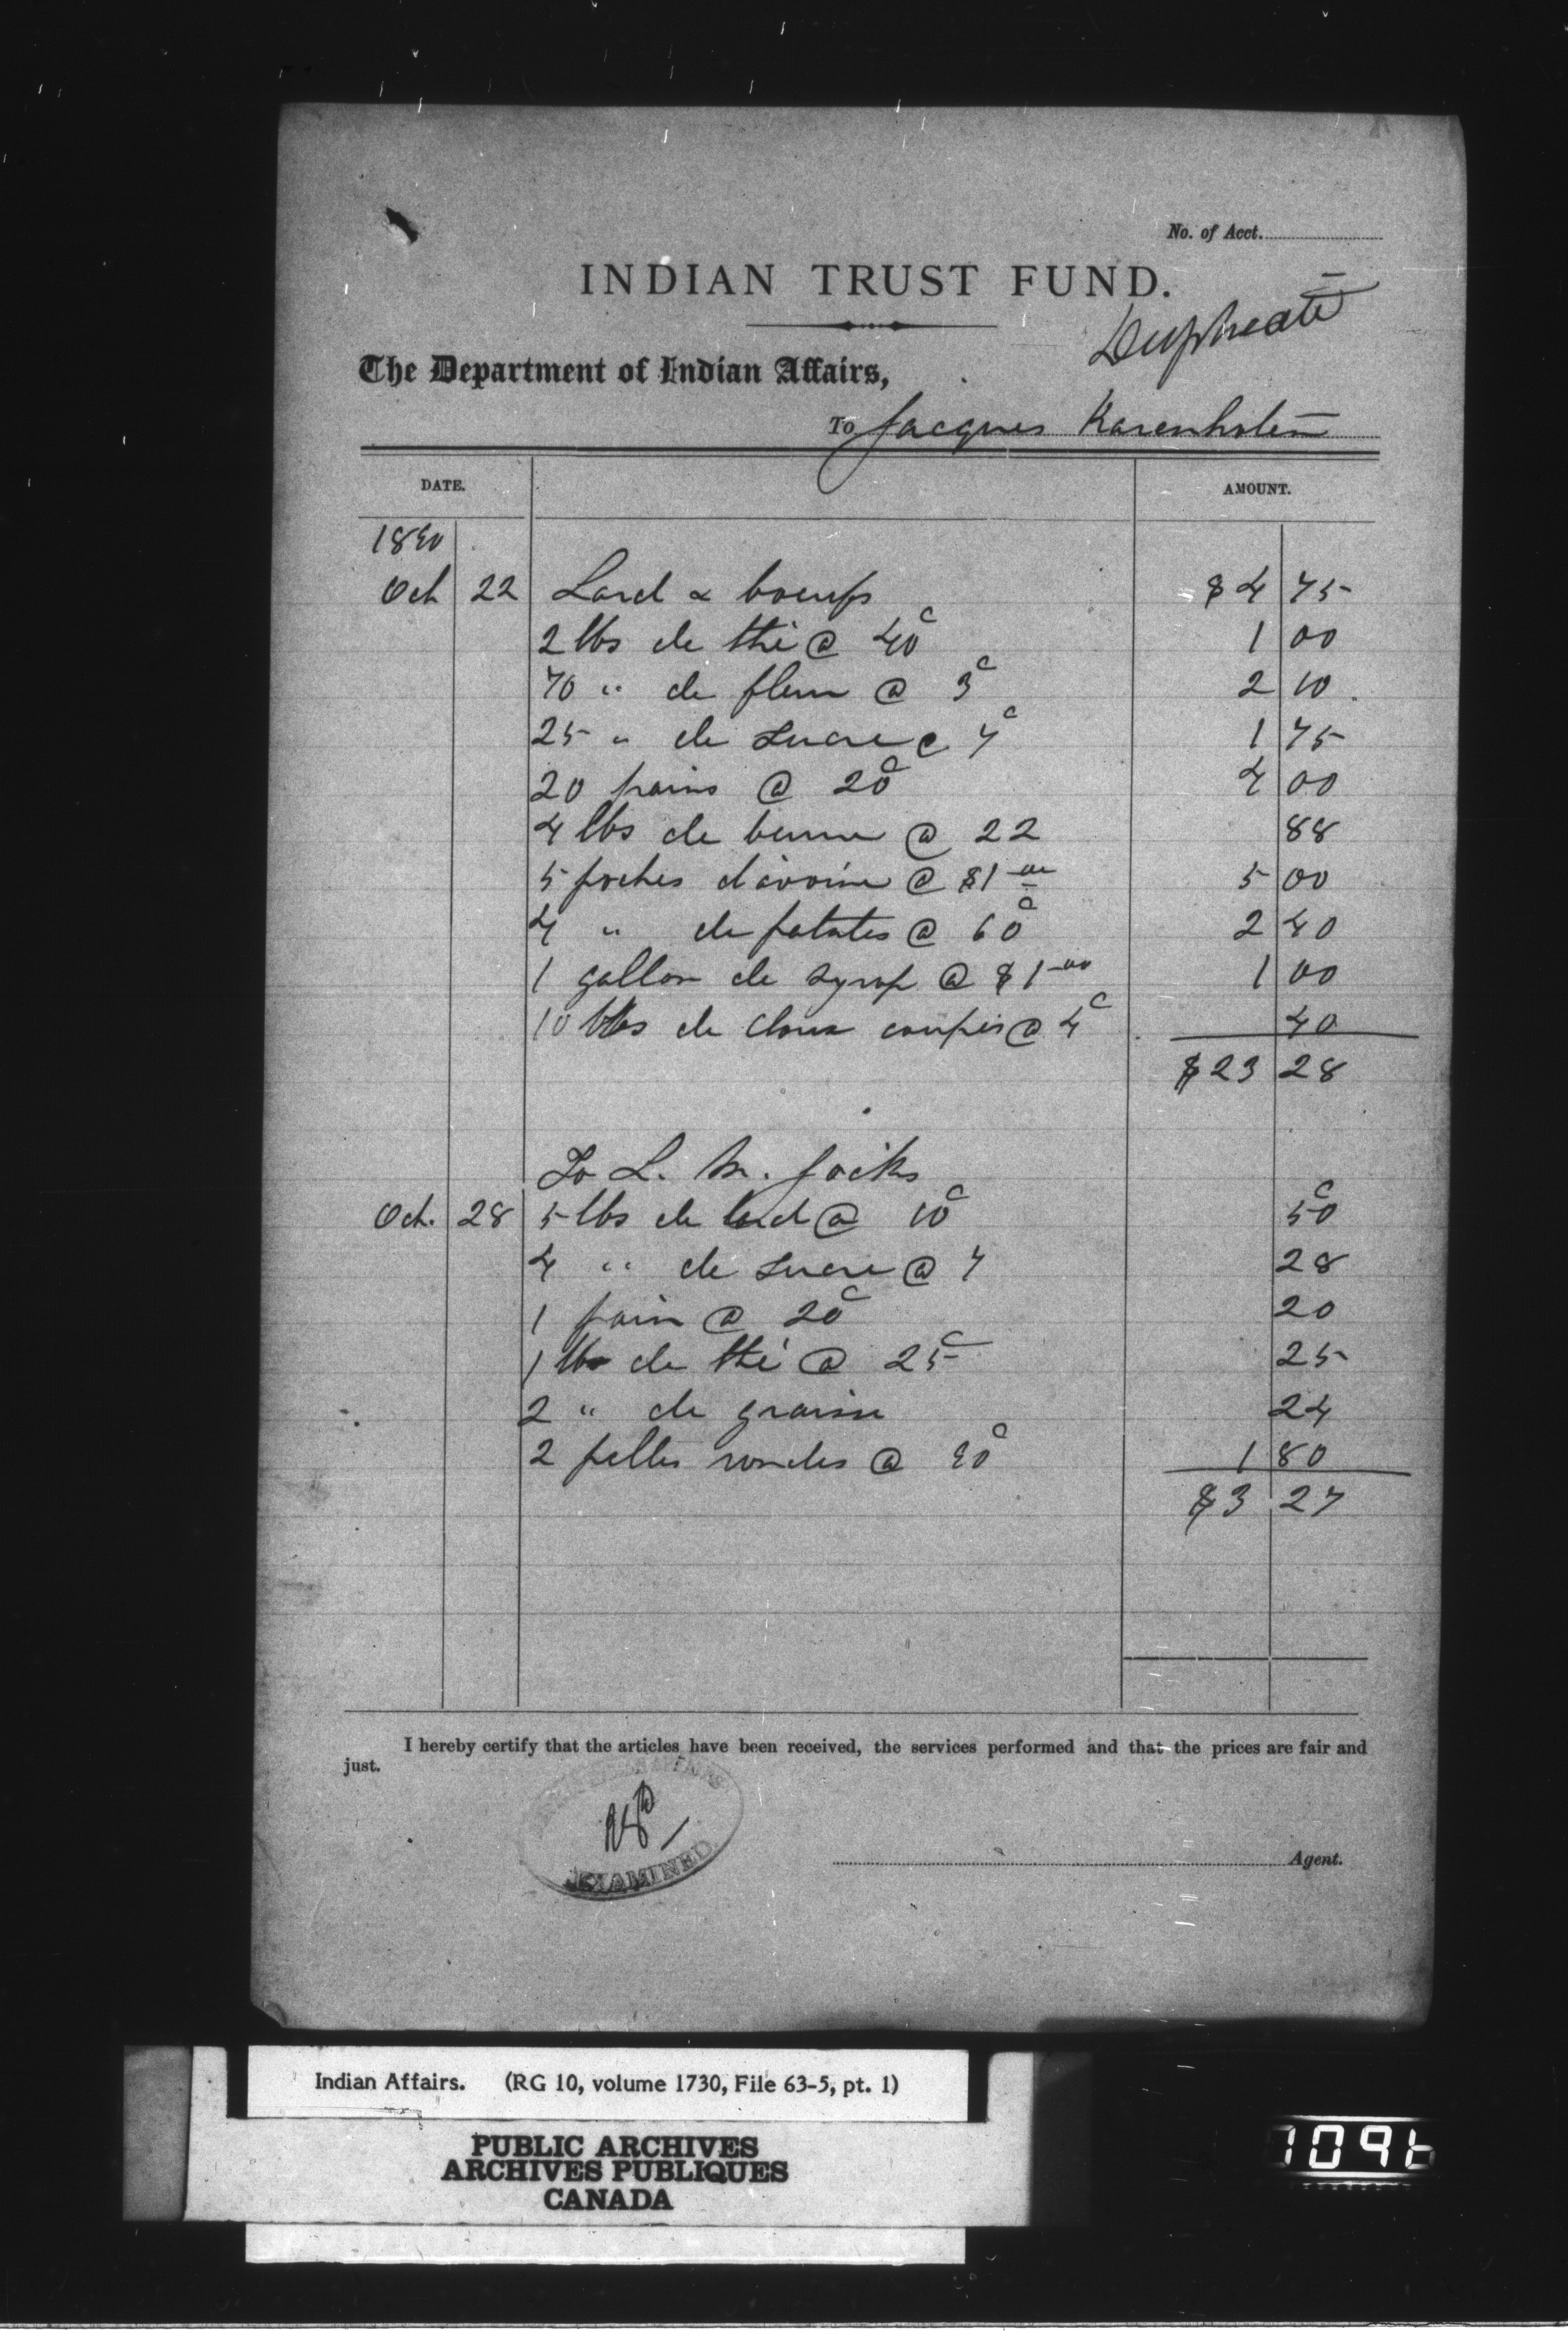 No. of Acct.
INDIAN TRUST FUND.
Duplicate
The Department of Indian Affairs,
To Jacques Karenhoten
DATE. AMOUNT.
1890
Oct 22 Lard & boeufs $4 75
2 lbs de thé @ 40c 1 00
70 " de fleur @ 3c 2 10
25 " de sucre @ 7c 1 75
20 pains @ 20c 4 00
4 lbs de beurre @ 22 88
5 poches d'avoine @ $1 00 5 00
4 " de patates @ 60c 2 40
1 gallon de syrop @ $1 00 1 00
10 lbs de cloux coupés @ 4c 40
$23 28
To L. M. Jocks
Oct. 28 5 lbs de lard @ 10c 50c
4 " de sucre @ 7 28
1 pain @ 20c 20
1 lb de thé @ 25c 25
2 " de graisse 24
2 pelles rondes @ 90c 1 80
$3 27
I hereby certify that the articles have been received, the services performed and that the prices are fair and
just.
EXAMINED
Agent.
Indian Affairs. (RG 10, volume 1730, File 63-5, pt. 1)
PUBLIC ARCHIVES
ARCHIVES PUBLIQUES
CANADA